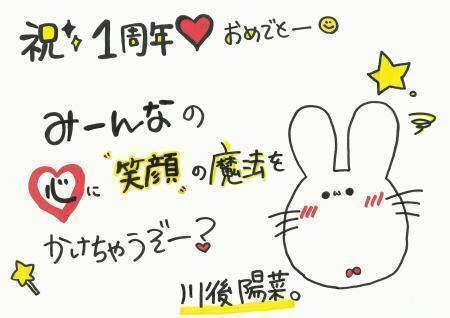 祝1周年♥おめでとー
みーんなの
心に"笑顔"の魔法を
かけちゃうぞー?
川後陽菜。